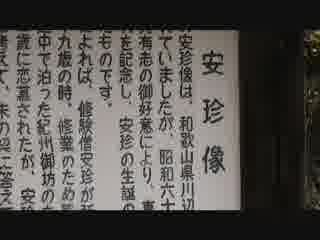 安珍像
安珍像は、和歌山県川辺
れていましたが、昭和六十
有志の御好意により、
を記念し、安珍の生誕の
ものです。
よれば、修験僧安珍が
九歳の時、修業のため
中で泊った紀州御坊の
歳に恋慕されたが、安
考えて、来の招に答え